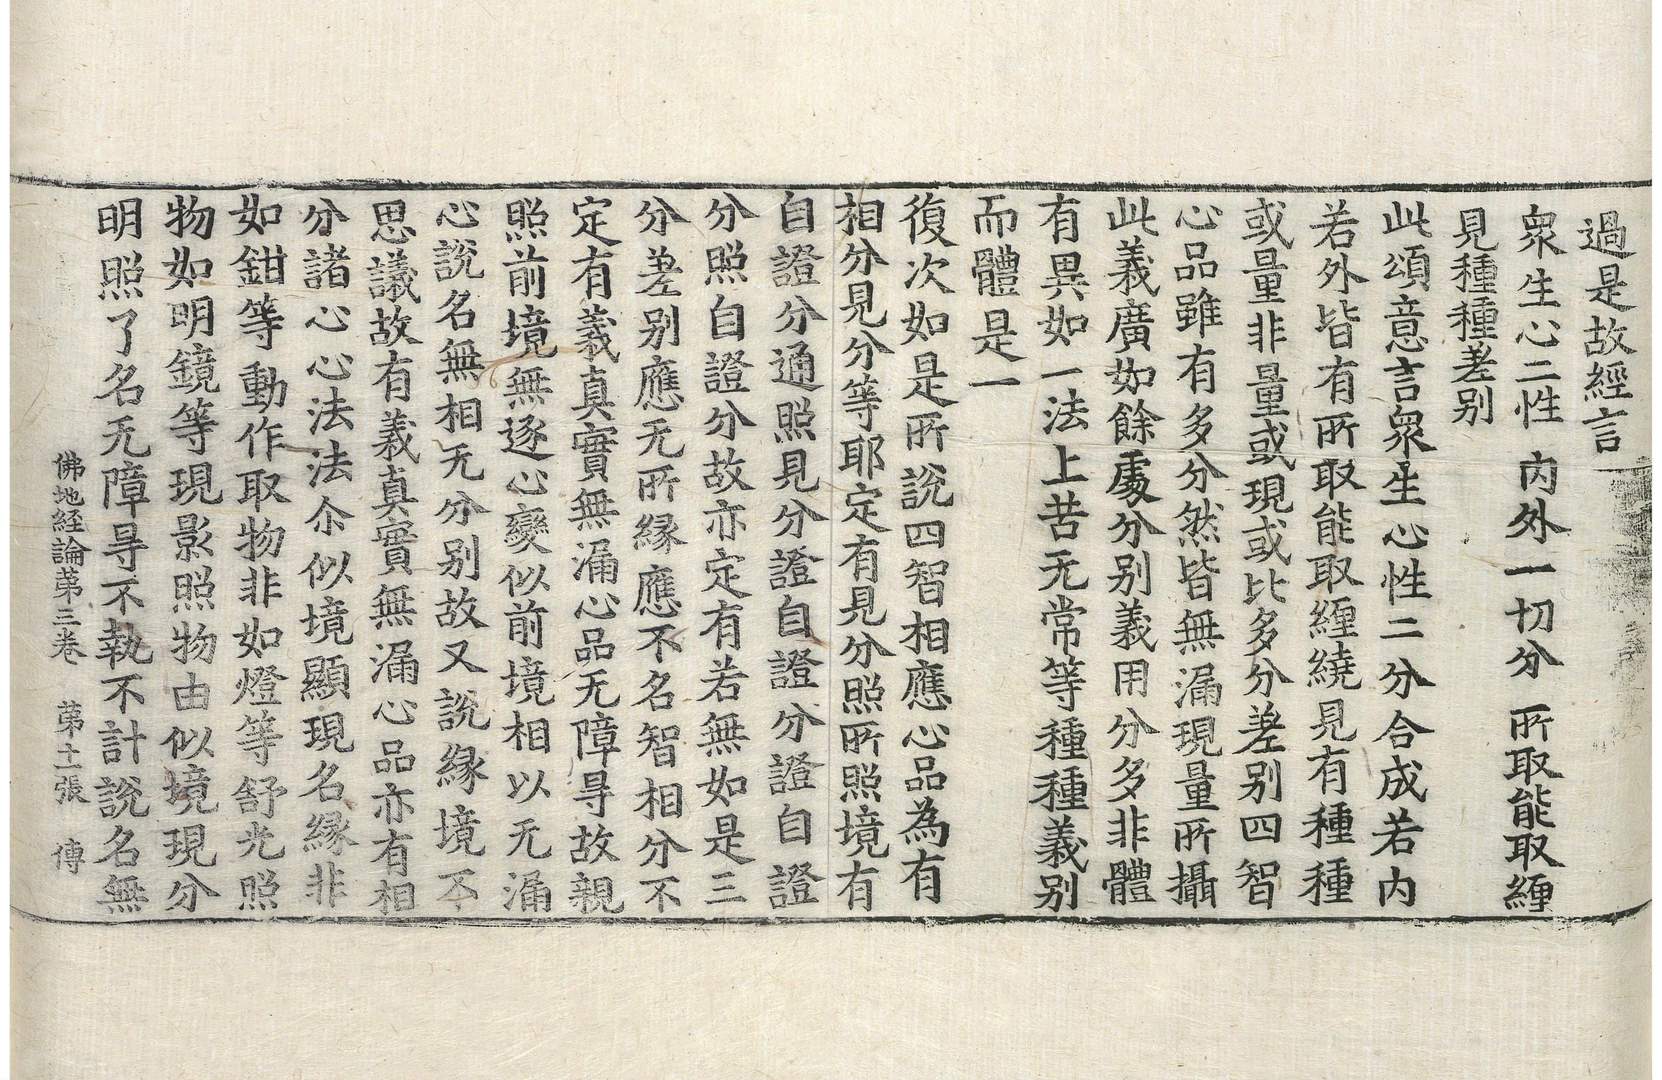 過是故經言
衆生心二性 内外一切分 所取能取纏
見種種差别
此頌意言衆生心性二分合成若内
若外皆有所取能取纏繞見有種種
或量非量或現或比多分差别四智
心品雖有多分然皆無漏現量所攝
此義廣如餘處分别義用分多非體
有異如一法上苦无常等種種義别
而體是一
復次如是所說四智相應心品為有
相分見分等耶定有見分照所照境有
自證分通照見分證自證分證自證
分照自證分故亦定有若無如是三
分差别應无所縁應不名智相分不
定有義真實無漏心品无障㝵故親
照前境無逐心變似前境相以无漏
心說名無相无分别故又說縁境不
思議故有義真實無漏心品亦有相
分諸心心法法尒似境顯現名縁非
如鉗等動作取物非如燈等舒光照
物如明鏡等現影照物由似境現分
明照了名无障㝵不執不計說名無
佛地経論苐三卷 苐十一張 傳